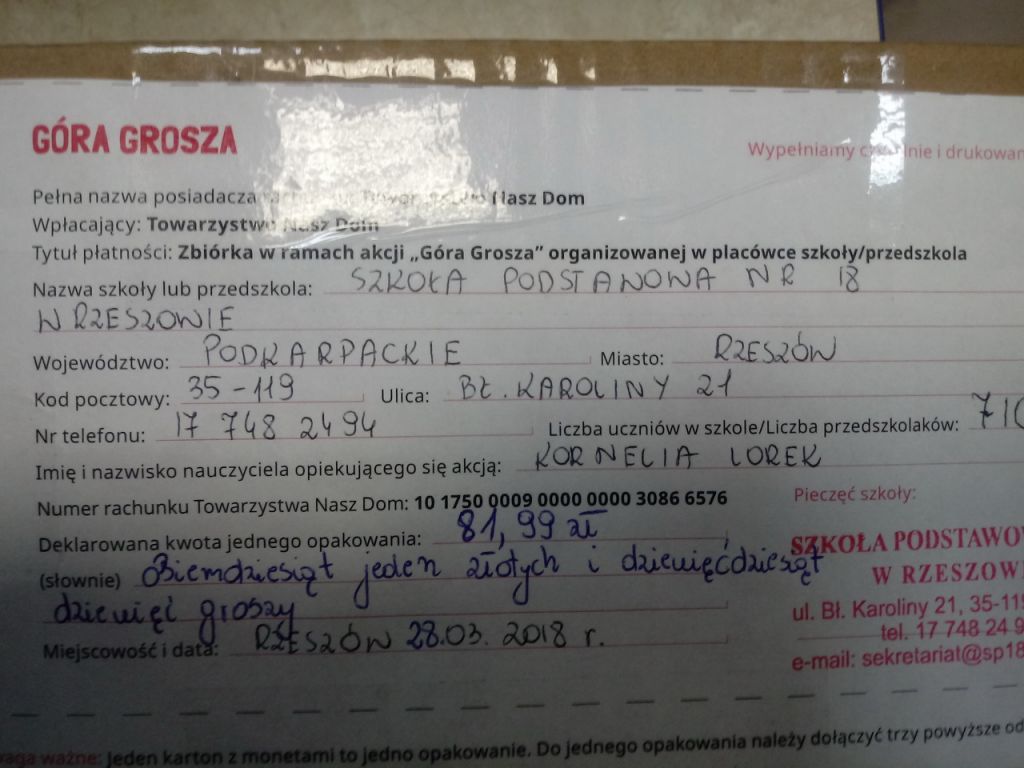 GÓRA GROSZA
Wypełniamy i drukowan
Pełna nazwa posiadacza Nasz Dom
Wpłacający: Towarzystwo Nasz Dom
Tytuł płatności: Zbiórka w ramach akcji „Góra Grosza” organizowanej w placówce szkoły/przedszkola
Nazwa szkoły lub przedszkola: SZKOŁA PODSTAWOWA NR 18
W RZESZOWIE
Województwo: PODKARPACKIE Miasto: RZESZÓW
Kod pocztowy: 35-119 Ulica: BŁ. KAROLINY 21
Nr telefonu: 17 748 2494 Liczba uczniów w szkole/Liczba przedszkolaków: 710
Imię i nazwisko nauczyciela opiekującego się akcją: KORNELIA LOREK
Numer rachunku Towarzystwa Nasz Dom: 10 1750 0009 0000 0000 3086 6576
Pieczęć szkoły:
Deklarowana kwota jednego opakowania: 81,99 zł
(słownie) Osiemdziesiąt jeden złotych i dziewięćdziesąt
dziewięć groszy
Miejscowość i data: RZESZÓW 28.03. 2018 r.
SZKOŁA PODSTAWO
W RZESZOWI
ul. Bł. Karoliny 21, 35-119
tel. 17 748 24 9
e-mail: sekretariat@sp18
waga ważne: Jeden karton z monetami to jedno opakowanie. Do jednego opakowania należy dołączyć trzy powyższe od